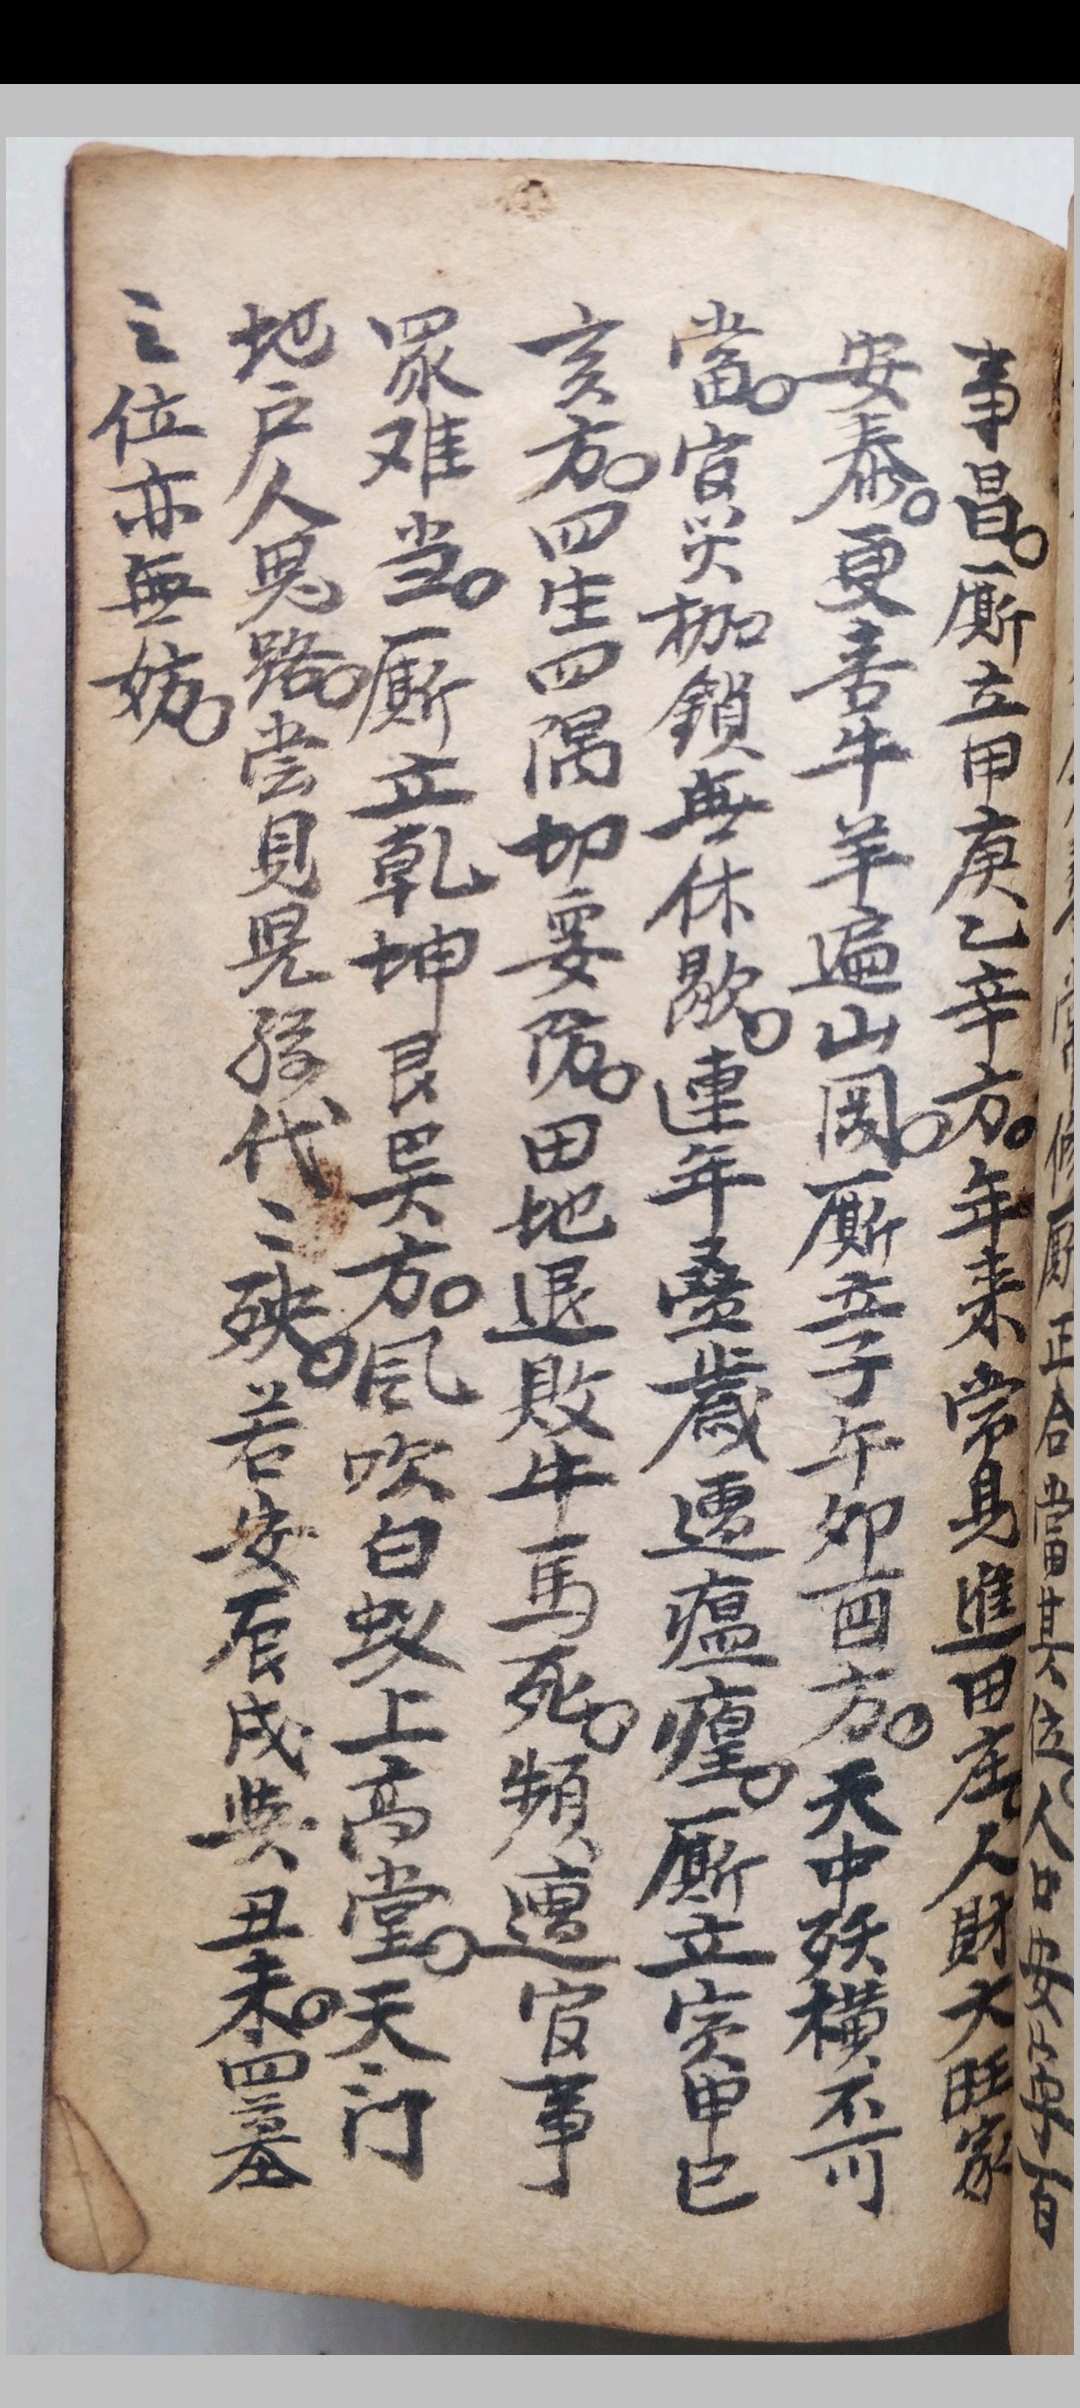 修厠正合當其位。人口安寧百
事昌。厠立甲庚乙辛方。年来常見進田庄。人財大旺家
安泰。更喜牛羊遍山岡。厠立子午卯酉方。天中殀横不可
當。官災枷鎖無休歇。連年疊歲遭瘟瘟。厠立寅甲巳
亥方。四生四隅切要防。田地退敗牛馬死。頻遭官事
眾难当。厠立乾坤艮巽方。風吹白蚁上高堂。天门
地户人鬼路。尝見児孫代々殃。若安辰戌與丑未。四墓
之位亦無妨。